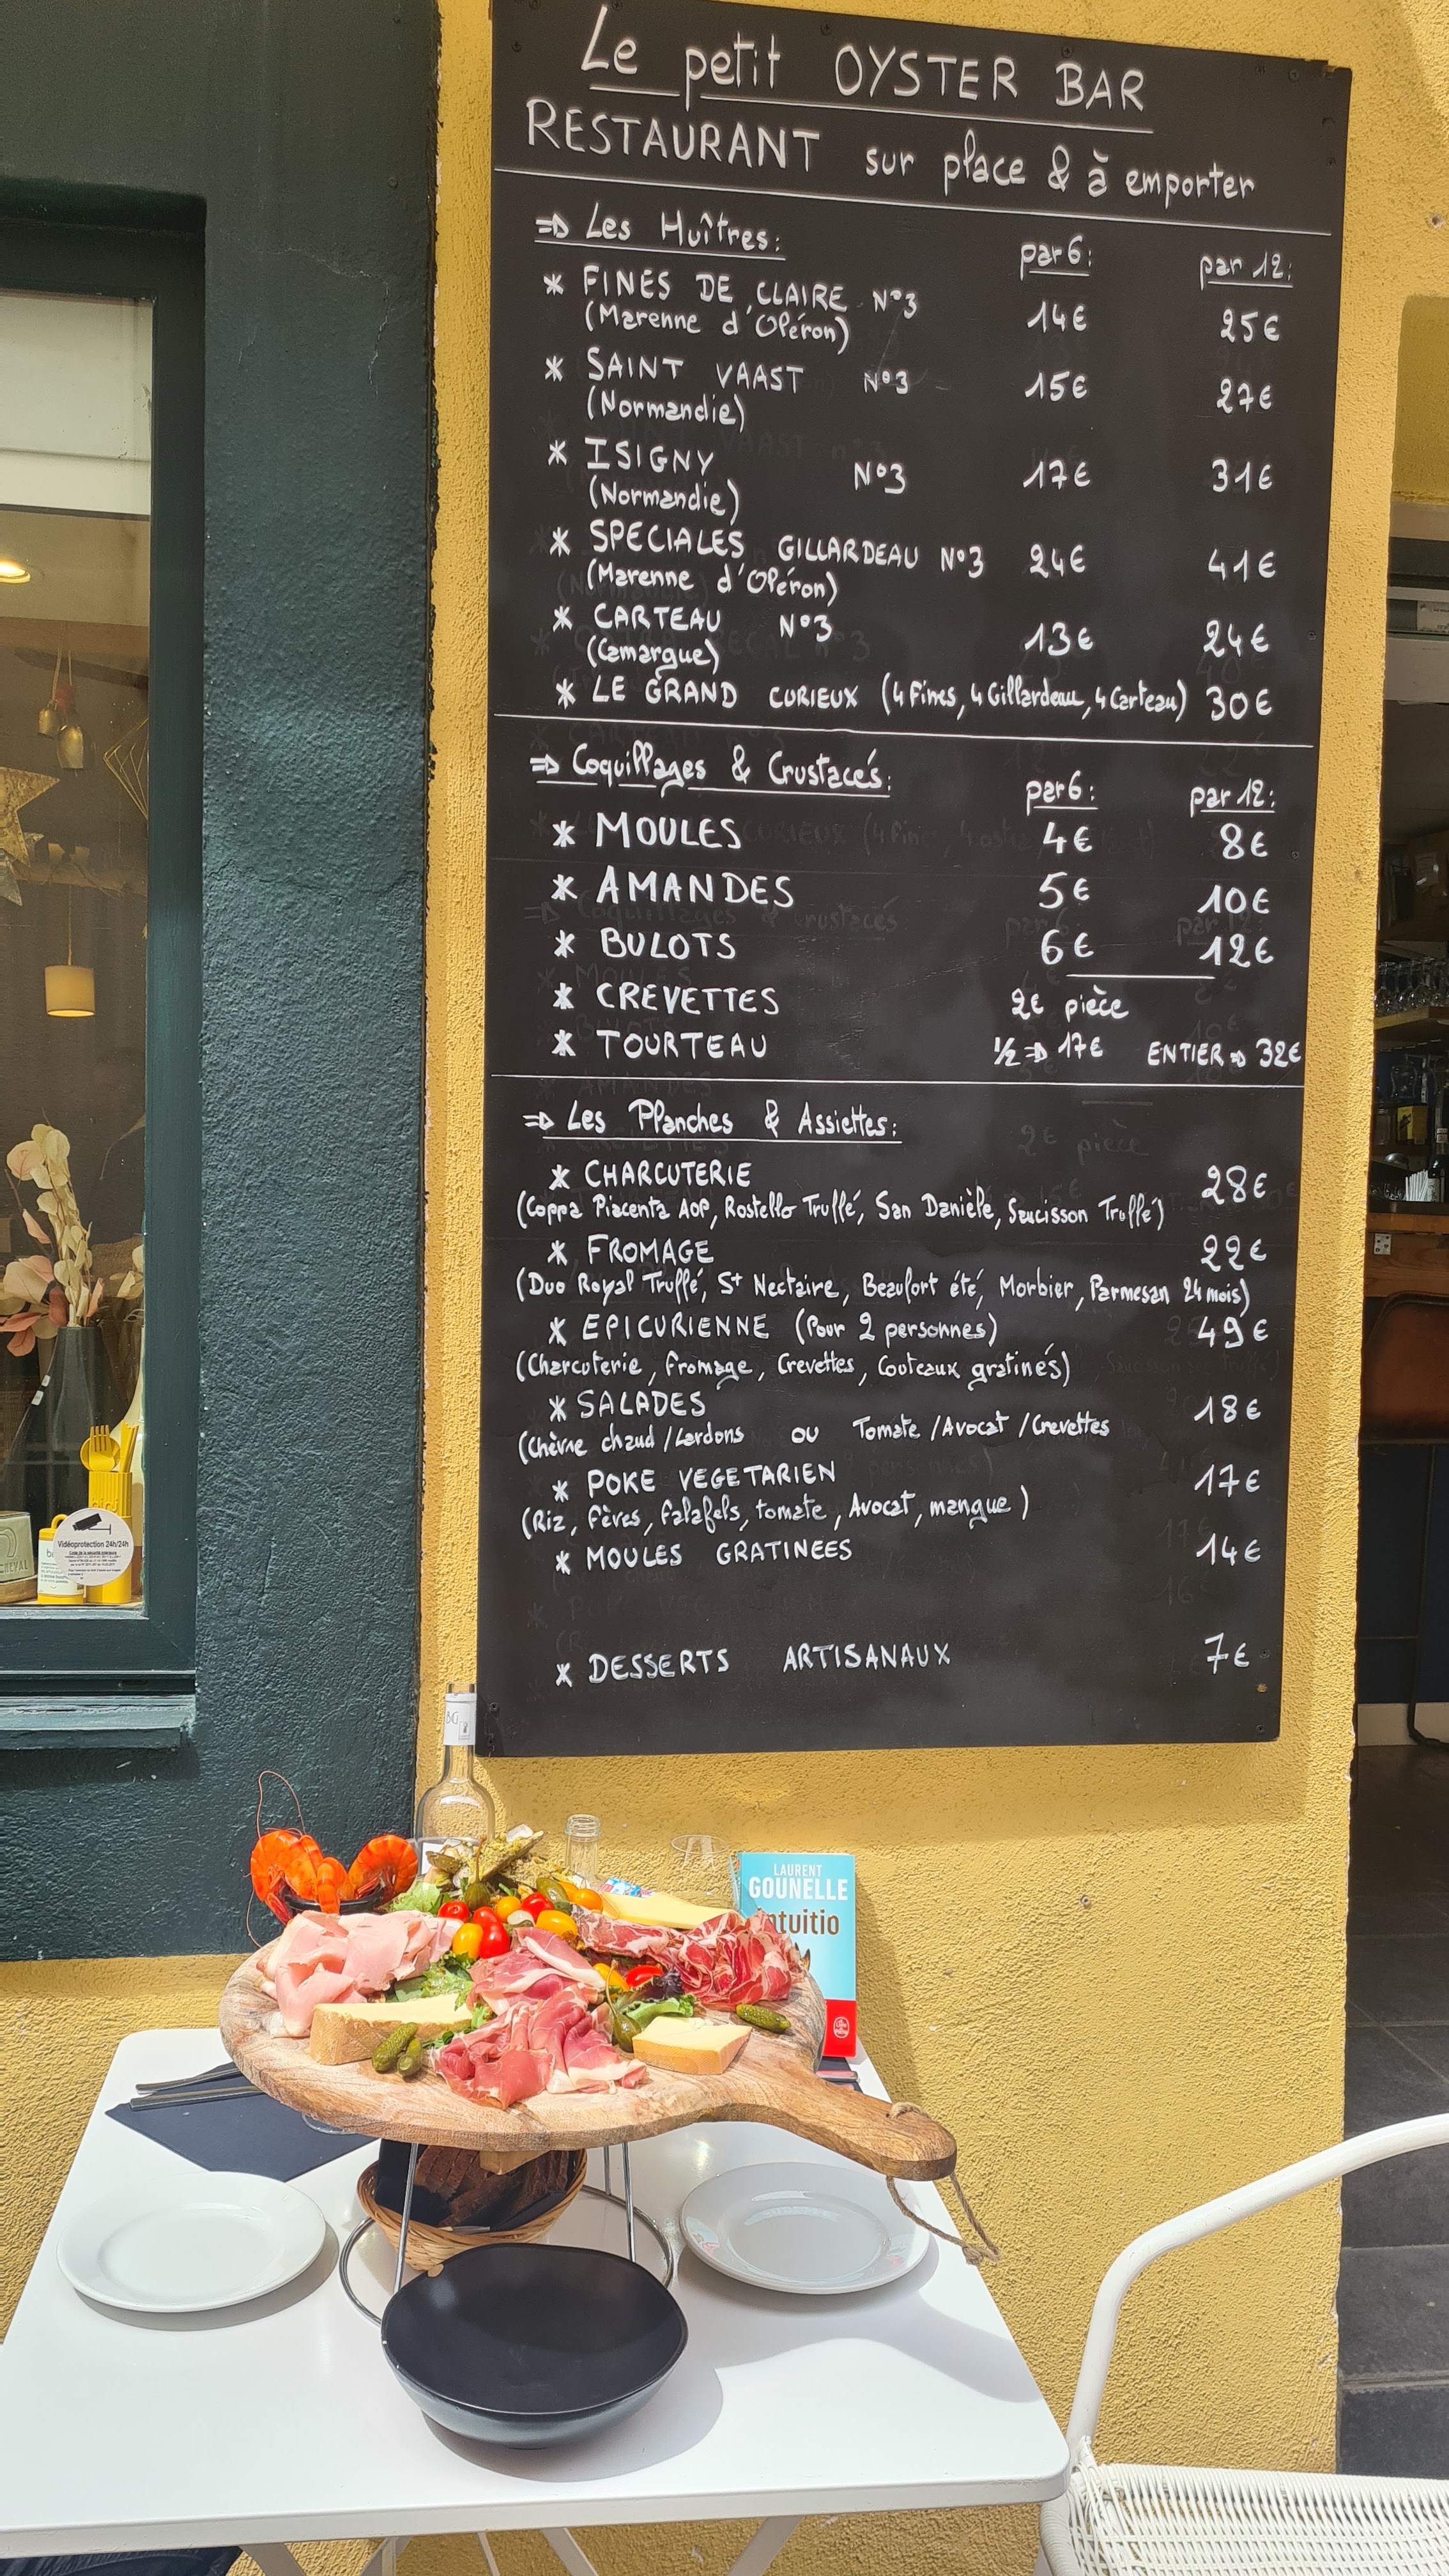 Le petit OYSTER BAR
RESTAURANT sur place & à emporter
⇒ Les Huîtres: par 6: par 12:
* FINES DE CLAIRE N°3 14€ 25€
(Marenne d'Oléron)
* SAINT VAAST N°3 15€ 27€
(Normandie)
* ISIGNY N°3 17€ 31€
(Normandie)
* SPECIALES GILLARDEAU N°3 24€ 41€
(Marenne d'Oléron)
* CARTEAU N°3 13€ 24€
(Camargue)
* LE GRAND CURIEUX (4 Fines, 4 Gillardeau, 4 Carteau) 30€
⇒ Coquillages & Crustacés: par 6: par 12:
* MOULES 4€ 8€
* AMANDES 5€ 10€
* BULOTS 6€ 12€
* CREVETTES 2€ pièce
* TOURTEAU 1/2 ⇒ 17€ ENTIER ⇒ 32€
⇒ Les Planches & Assiettes:
* CHARCUTERIE 28€
(Coppa Piacenta AOP, Rostello Truffé, San Danièle, Saucisson Truffé)
* FROMAGE 22€
(Duo Royal Truffé, St Nectaire, Beaufort été, Morbier, Parmesan 24 mois)
* EPICURIENNE (Pour 2 personnes) 49€
(Charcuterie, fromage, Crevettes, Couteaux gratinés)
* SALADES 18€
(Chèvre chaud / Lardons ou Tomate / Avocat / Crevettes
* POKE VEGETARIEN 17€
(Riz, fèves, falafels, tomate, Avocat, mangue)
* MOULES GRATINEES 14€
* DESSERTS ARTISANAUX 7€
Vidéoprotection 24h/24h
LAURENT
GOUNELLE
intuitio